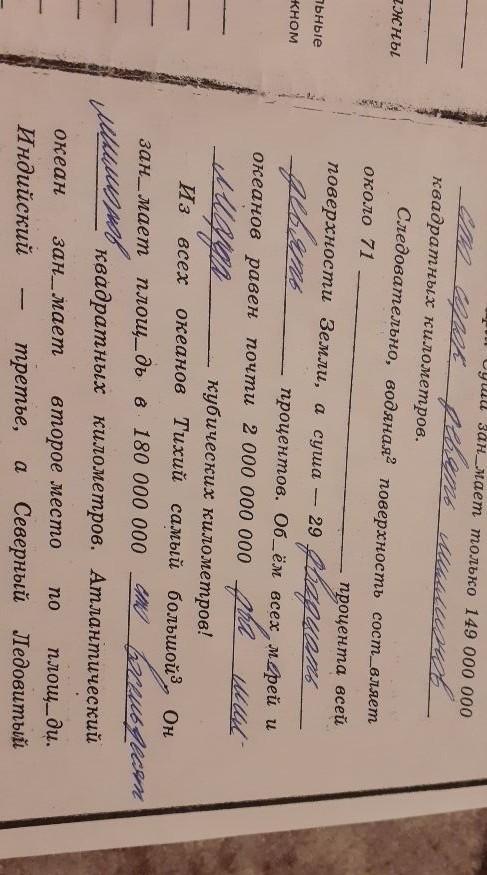 жны
льные
жном
зан_мает только 149 000 000
сто сорок девять миллионов
квадратных километров.
Следовательно, водяная² поверхность сост_вляет
около 71 ______ процента всей
поверхности Земли, а суша — 29 двадцать
девять процентов. Об_ём всех морей и
океанов равен почти 2 000 000 000 два мил-
лиард кубических километров!
Из всех океанов Тихий самый большой³ Он
зан_мает площ_дь в 180 000 000 сто восемьдесят
миллионов квадратных километров. Атлантический
океан зан_мает второе место по площ_ди.
Индийский — третье, а Северный Ледовитый